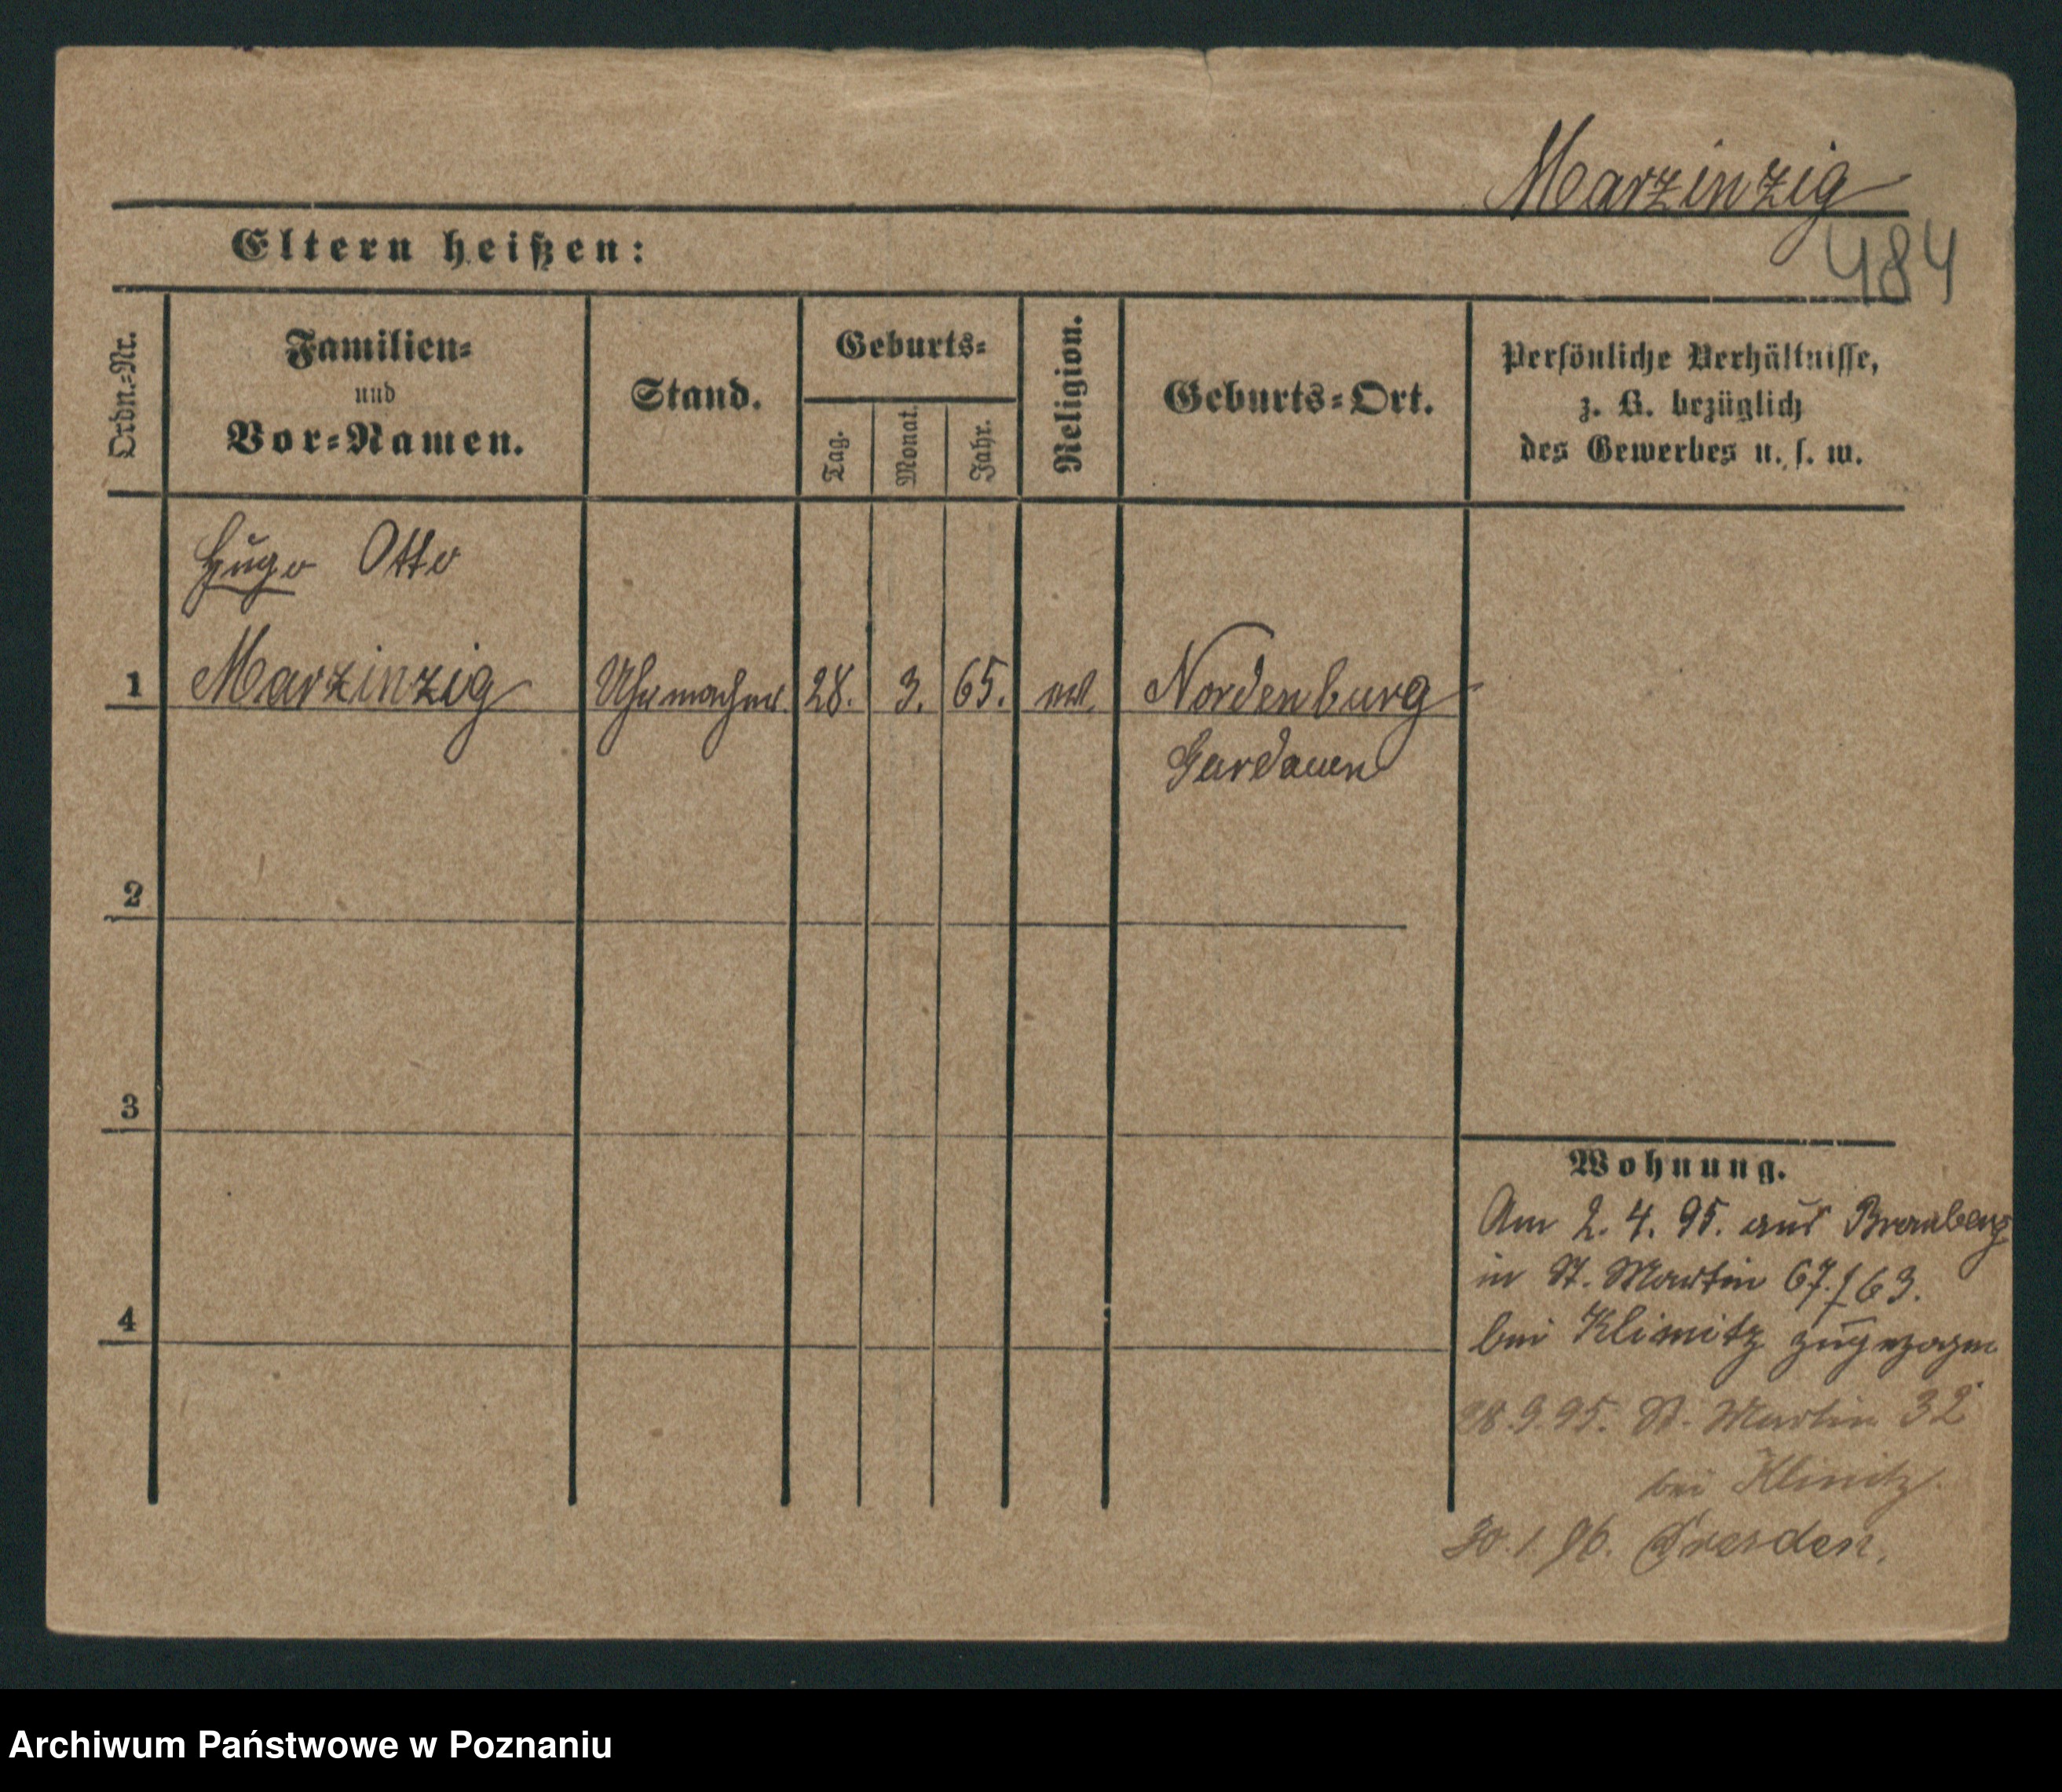 Marzinzig
484
Eltern heißen:
Ordn.=Nr.
Familien=
und
Vor=Namen.
Stand.
Geburts=
Tag.
Monat.
Jahr.
Religion.
Geburts=Ort.
Persönliche Verhältnisse,
z. B. bezüglich
des Gewerbes u. s. w.
Hugo Otto
1 Marzinzig Uhrmacher 28. 3. 65. ev. Nordenburg
Gerdauen
2
3
4
Wohnung.
Am 2. 4. 95. aus
in St. Martin 67./63.
bei Klimitz zugezogen
28.9.95. St. Martin 32
bei Klimitz.
30.1.96. Dresden.
Archiwum Państwowe w Poznaniu